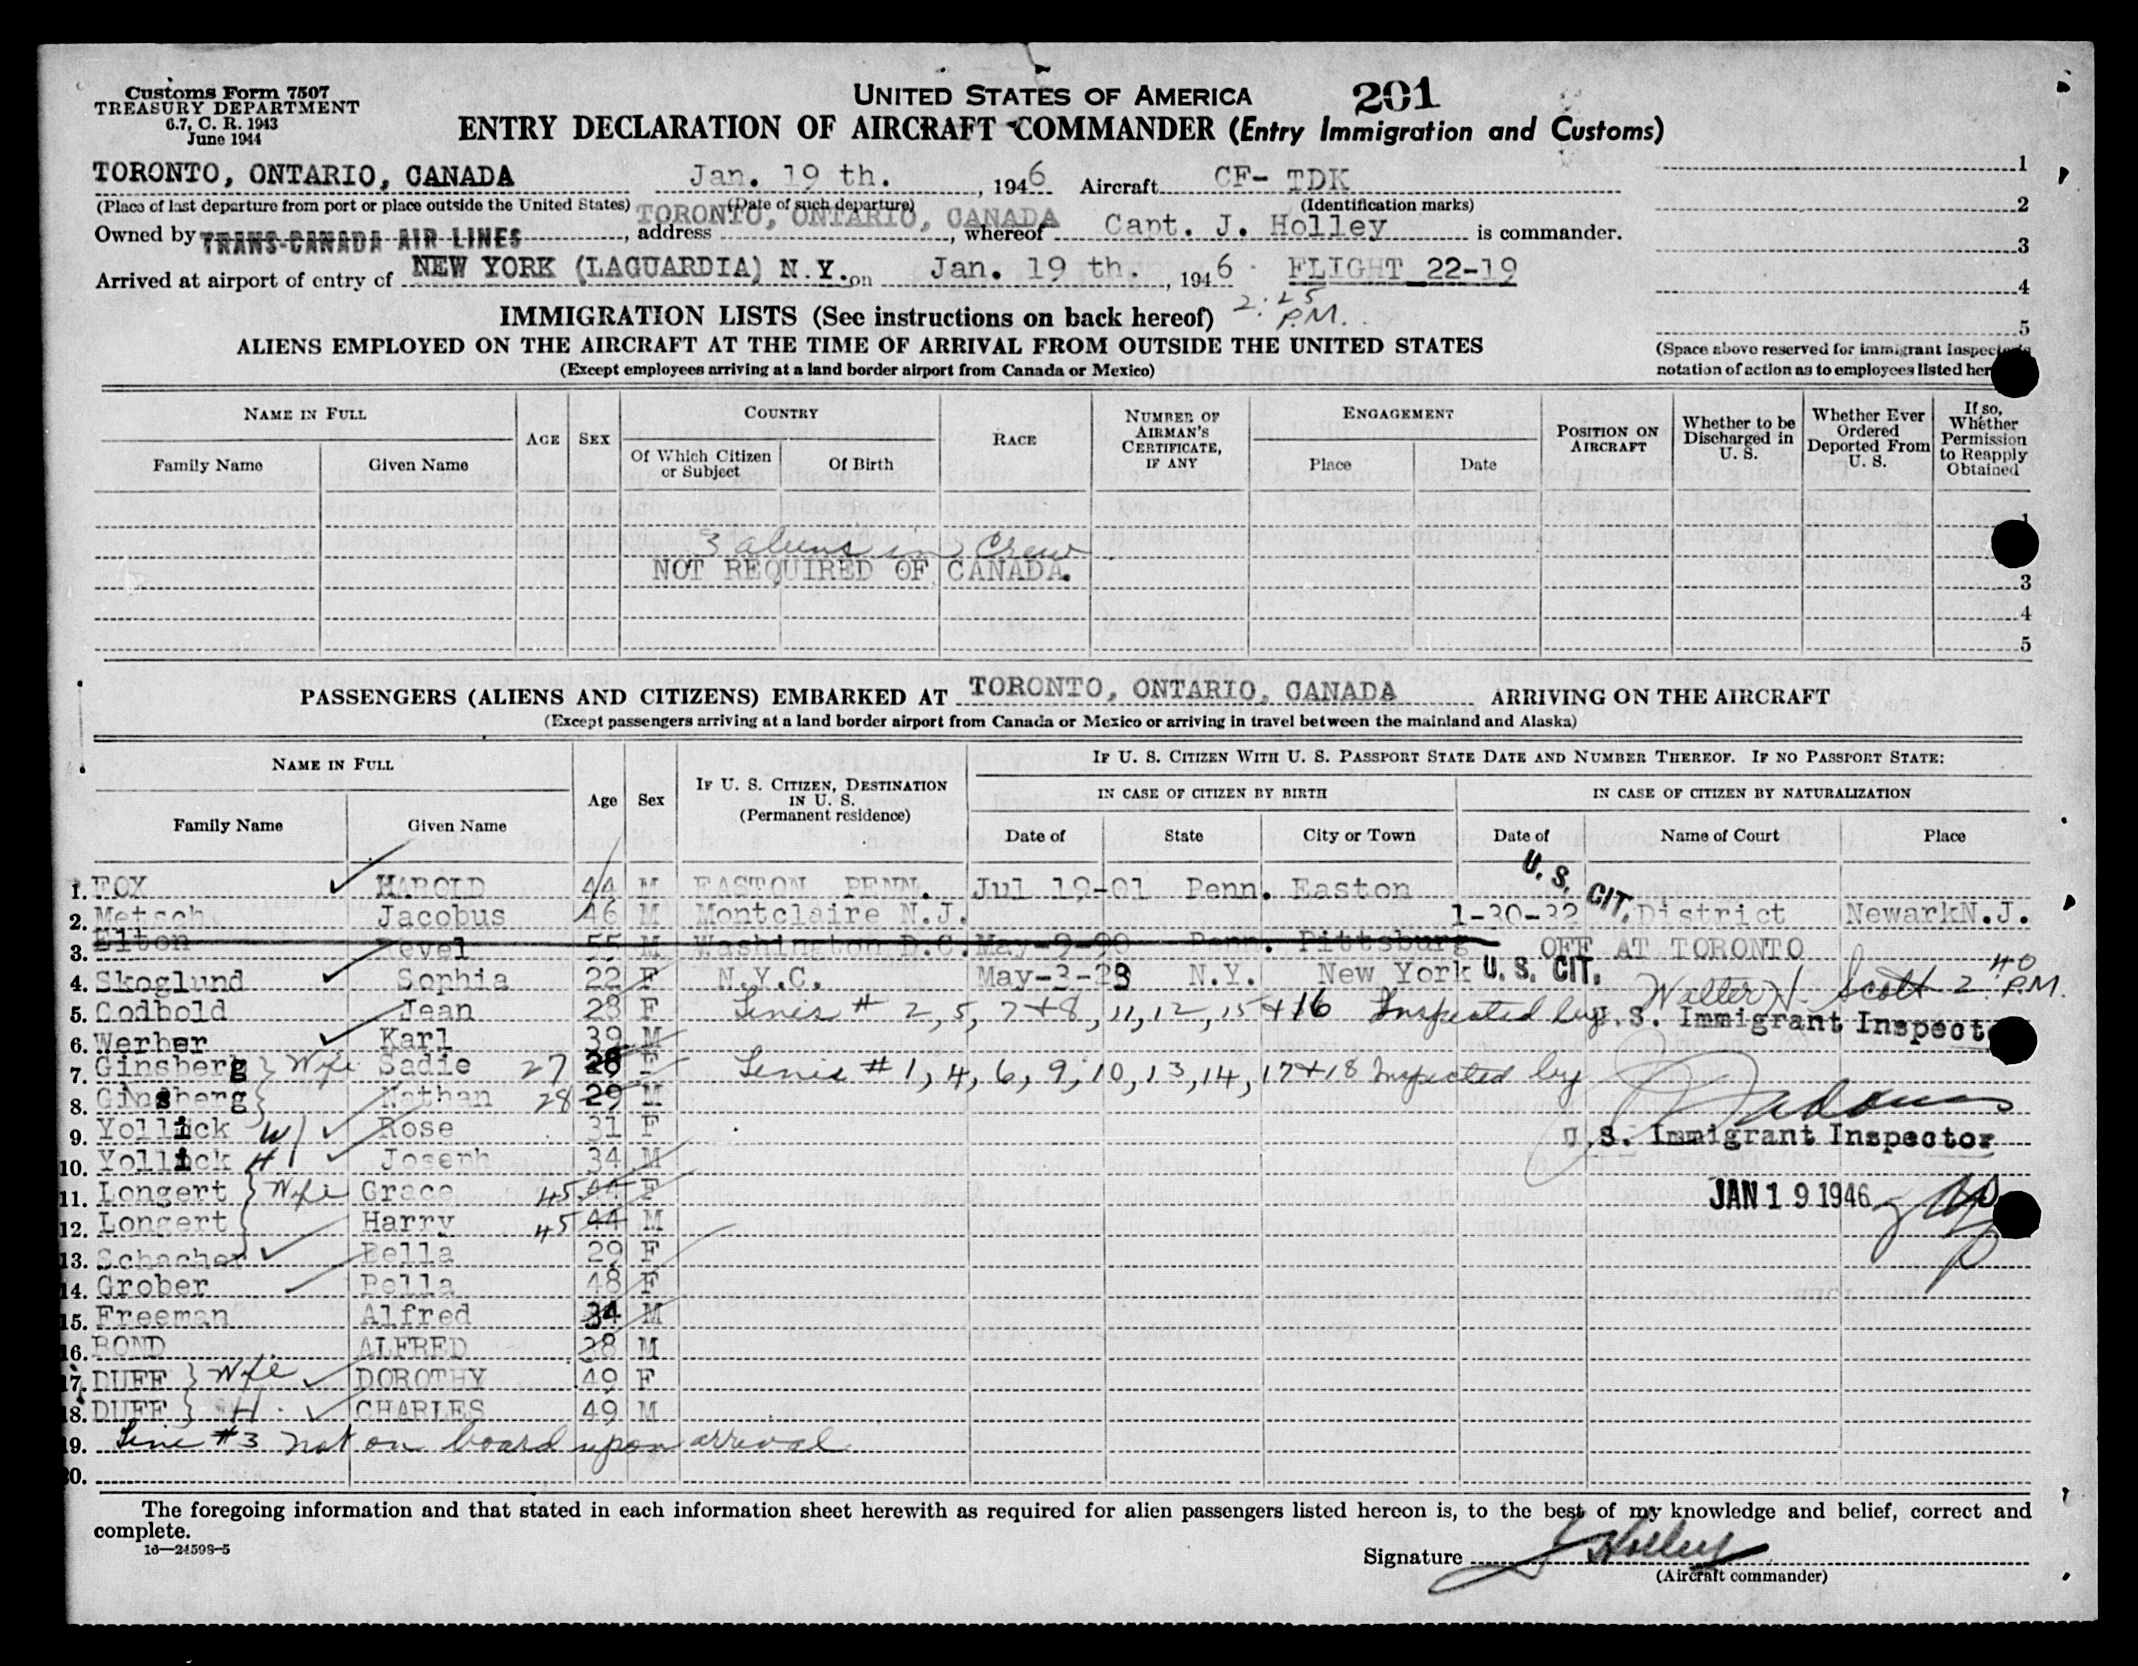 Customs Form 7507
TREASURY DEPARTMENT
6.7, C. R. 1943
June 1944
UNITED STATES OF AMERICA 201
ENTRY DECLARATION OF AIRCRAFT COMMANDER (Entry Immigration and Customs)
TORONTO, ONTARIO, CANADA Jan. 19 th. , 1946 Aircraft CF- TDK 1
(Place of last departure from port or place outside the United States) (Date of such departure) (Identification marks) 2
Owned by TRANS-CANADA AIR LINES , address TORONTO, ONTARIO, CANADA , whereof Capt. J. Holley is commander. 3
Arrived at airport of entry of NEW YORK (LAGUARDIA) N.Y. on Jan. 19 th. , 1946 FLIGHT 22-19 4
2.25 P.M.
IMMIGRATION LISTS (See instructions on back hereof) 5
ALIENS EMPLOYED ON THE AIRCRAFT AT THE TIME OF ARRIVAL FROM OUTSIDE THE UNITED STATES
(Except employees arriving at a land border airport from Canada or Mexico)
(Space above reserved for immigrant inspector's
notation of action as to employees listed her
NAME IN FULL AGE SEX COUNTRY RACE NUMBER OF AIRMAN'S CERTIFICATE, IF ANY ENGAGEMENT POSITION ON AIRCRAFT Whether to be Discharged in U. S. Whether Ever Ordered Deported From U. S. If so, Whether Permission to Reapply Obtained
Family Name Given Name Of Which Citizen or Subject Of Birth Place Date
1
3 aliens in Crew
NOT REQUIRED OF CANADA. 3
4
5
PASSENGERS (ALIENS AND CITIZENS) EMBARKED AT TORONTO, ONTARIO, CANADA ARRIVING ON THE AIRCRAFT
(Except passengers arriving at a land border airport from Canada or Mexico or arriving in travel between the mainland and Alaska)
NAME IN FULL Age Sex IF U. S. CITIZEN, DESTINATION IN U. S. (Permanent residence) IF U. S. CITIZEN WITH U. S. PASSPORT STATE DATE AND NUMBER THEREOF. IF NO PASSPORT STATE:
IN CASE OF CITIZEN BY BIRTH IN CASE OF CITIZEN BY NATURALIZATION
Family Name Given Name Date of State City or Town Date of Name of Court Place
1. FOX HAROLD 44 M EASTON PENN. Jul 19-01 Penn. Easton U. S. CIT.
2. Metsch Jacobus 46 M Montclaire N.J. 1-30-32 District Newark N.J.
3. Elton evel 55 M Washington D.C. May-9-90 Penn. Pittsburg OFF AT TORONTO
4. Skoglund Sophia 22 F N.Y.C. May-3-23 N.Y. New York U. S. CIT. Walter H. Scott 2.40 P.M.
5. Godbold Jean 28 F Lines # 2, 5, 7+8, 11, 12, 15+16 Inspected by U.S. Immigrant Inspect
6. Werher Karl 39 M
7. Ginsberg } Wife Sadie 27 28 F Lines # 1, 4, 6, 9, 10, 13, 14, 17+18 Inspected by
8. Ginsberg } Nathan 28 29 M
9. Yollick W Rose 31 F U.S. Immigrant Inspector
10. Yollick H Joseph 34 M
11. Longert } Wife Grace 45 44 F JAN 19 1946
12. Longert Harry 45 44 M
13. Schacher Bella 29 F
14. Grober Pella 48 F
15. Freeman Alfred 34 M
16. BOND ALFRED 28 M
17. DUFF } Wife DOROTHY 49 F
18. DUFF } H. CHARLES 49 M
19. Line #3 not on board upon arrival
20.
The foregoing information and that stated in each information sheet herewith as required for alien passengers listed hereon is, to the best of my knowledge and belief, correct and
complete.
16—24598-5
Signature J Holley
(Aircraft commander)